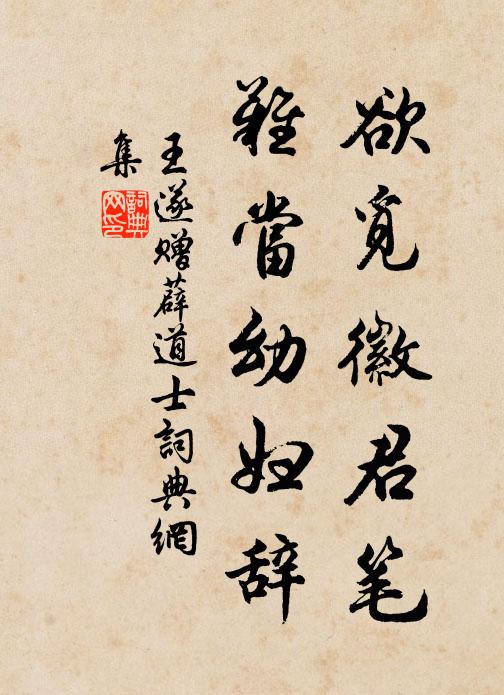 欲觅徽君笔
难當幼妇辞
王遂赠薛道士詞典網
集
詞典网印